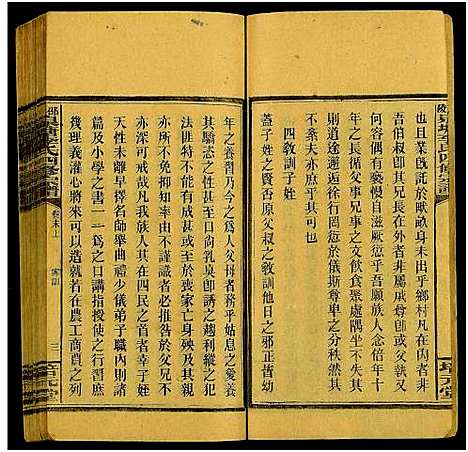 也且業既託於畎畝身未出乎鄉村凡在內者非
吾伯叔即其兄長在外者非屬戚尊即或父執又
何容偶有褻慢自滋厥愆乎吾願族人念倍年十
年之長循父事兄事之文飲食聚處隅坐不失其
則道途邂逅徐行罔愆於儀斯尊卑之分秩然其
不紊夫亦庶乎其可
四教訓子姪
蓋子姓之賢否原父叔之敎訓他日之邪正皆幼
年之養習乃今之為人父母者務乎姑息之愛養
其驕志之性甫口尚乳臭即誘之趨利縱之犯
法匪特不能有成甚或至於喪家亡身殃及其親
亦所不免抑知率由不謹識者必推咎於父兄
亦深可戒哉凡我族人其在四民之首者幸子姪
天性未漓早擇名師舉曲禮少儀弟子職內則諸
篇及小學之書一一為之口講指授使之行習
幾理義灌心將來可以造就若在農工商賈之列
卷末上
家訓
三
培元堂